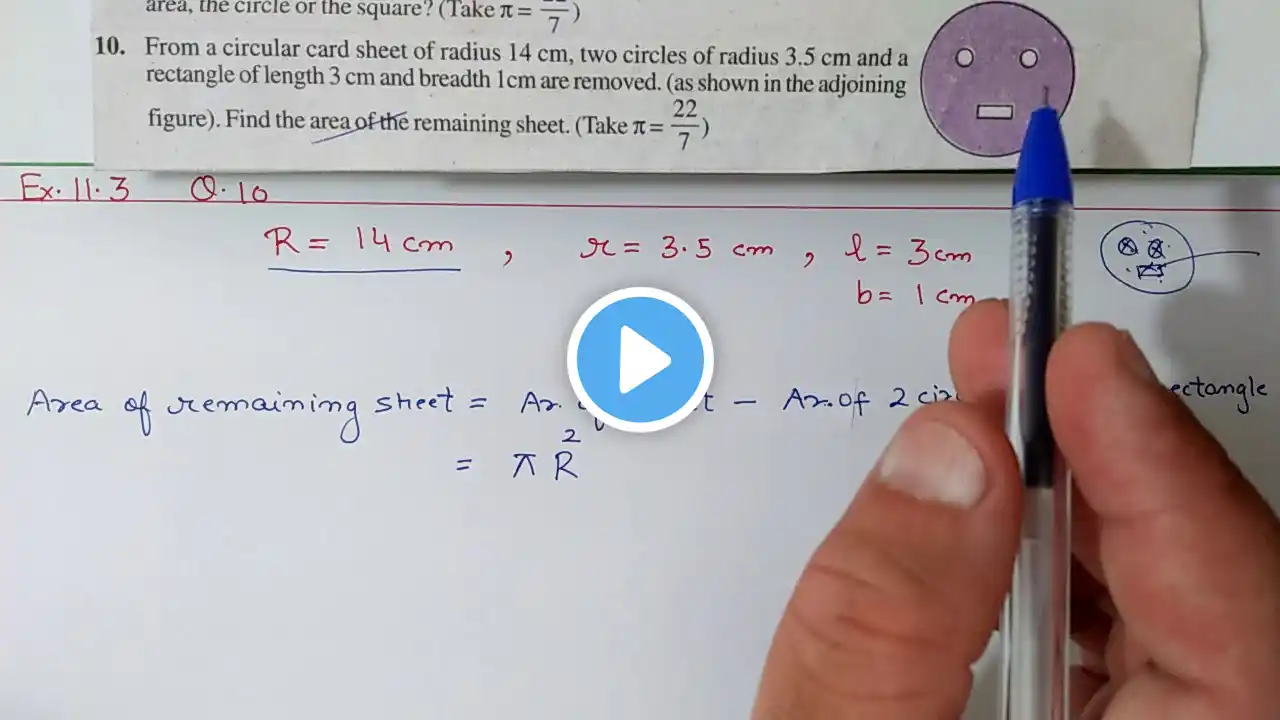 area, the circle or the square? (Take π = 22/7)
10. From a circular card sheet of radius 14 cm, two circles of radius 3.5 cm and a
rectangle of length 3 cm and breadth 1cm are removed. (as shown in the adjoining
figure). Find the area of the remaining sheet. (Take π = 22/7)
Ex. 11.3 Q. 10
R = 14 cm , r = 3.5 cm , l = 3cm
b = 1 cm
Area of remaining sheet = Ar. − Ar. of 2
= π R²